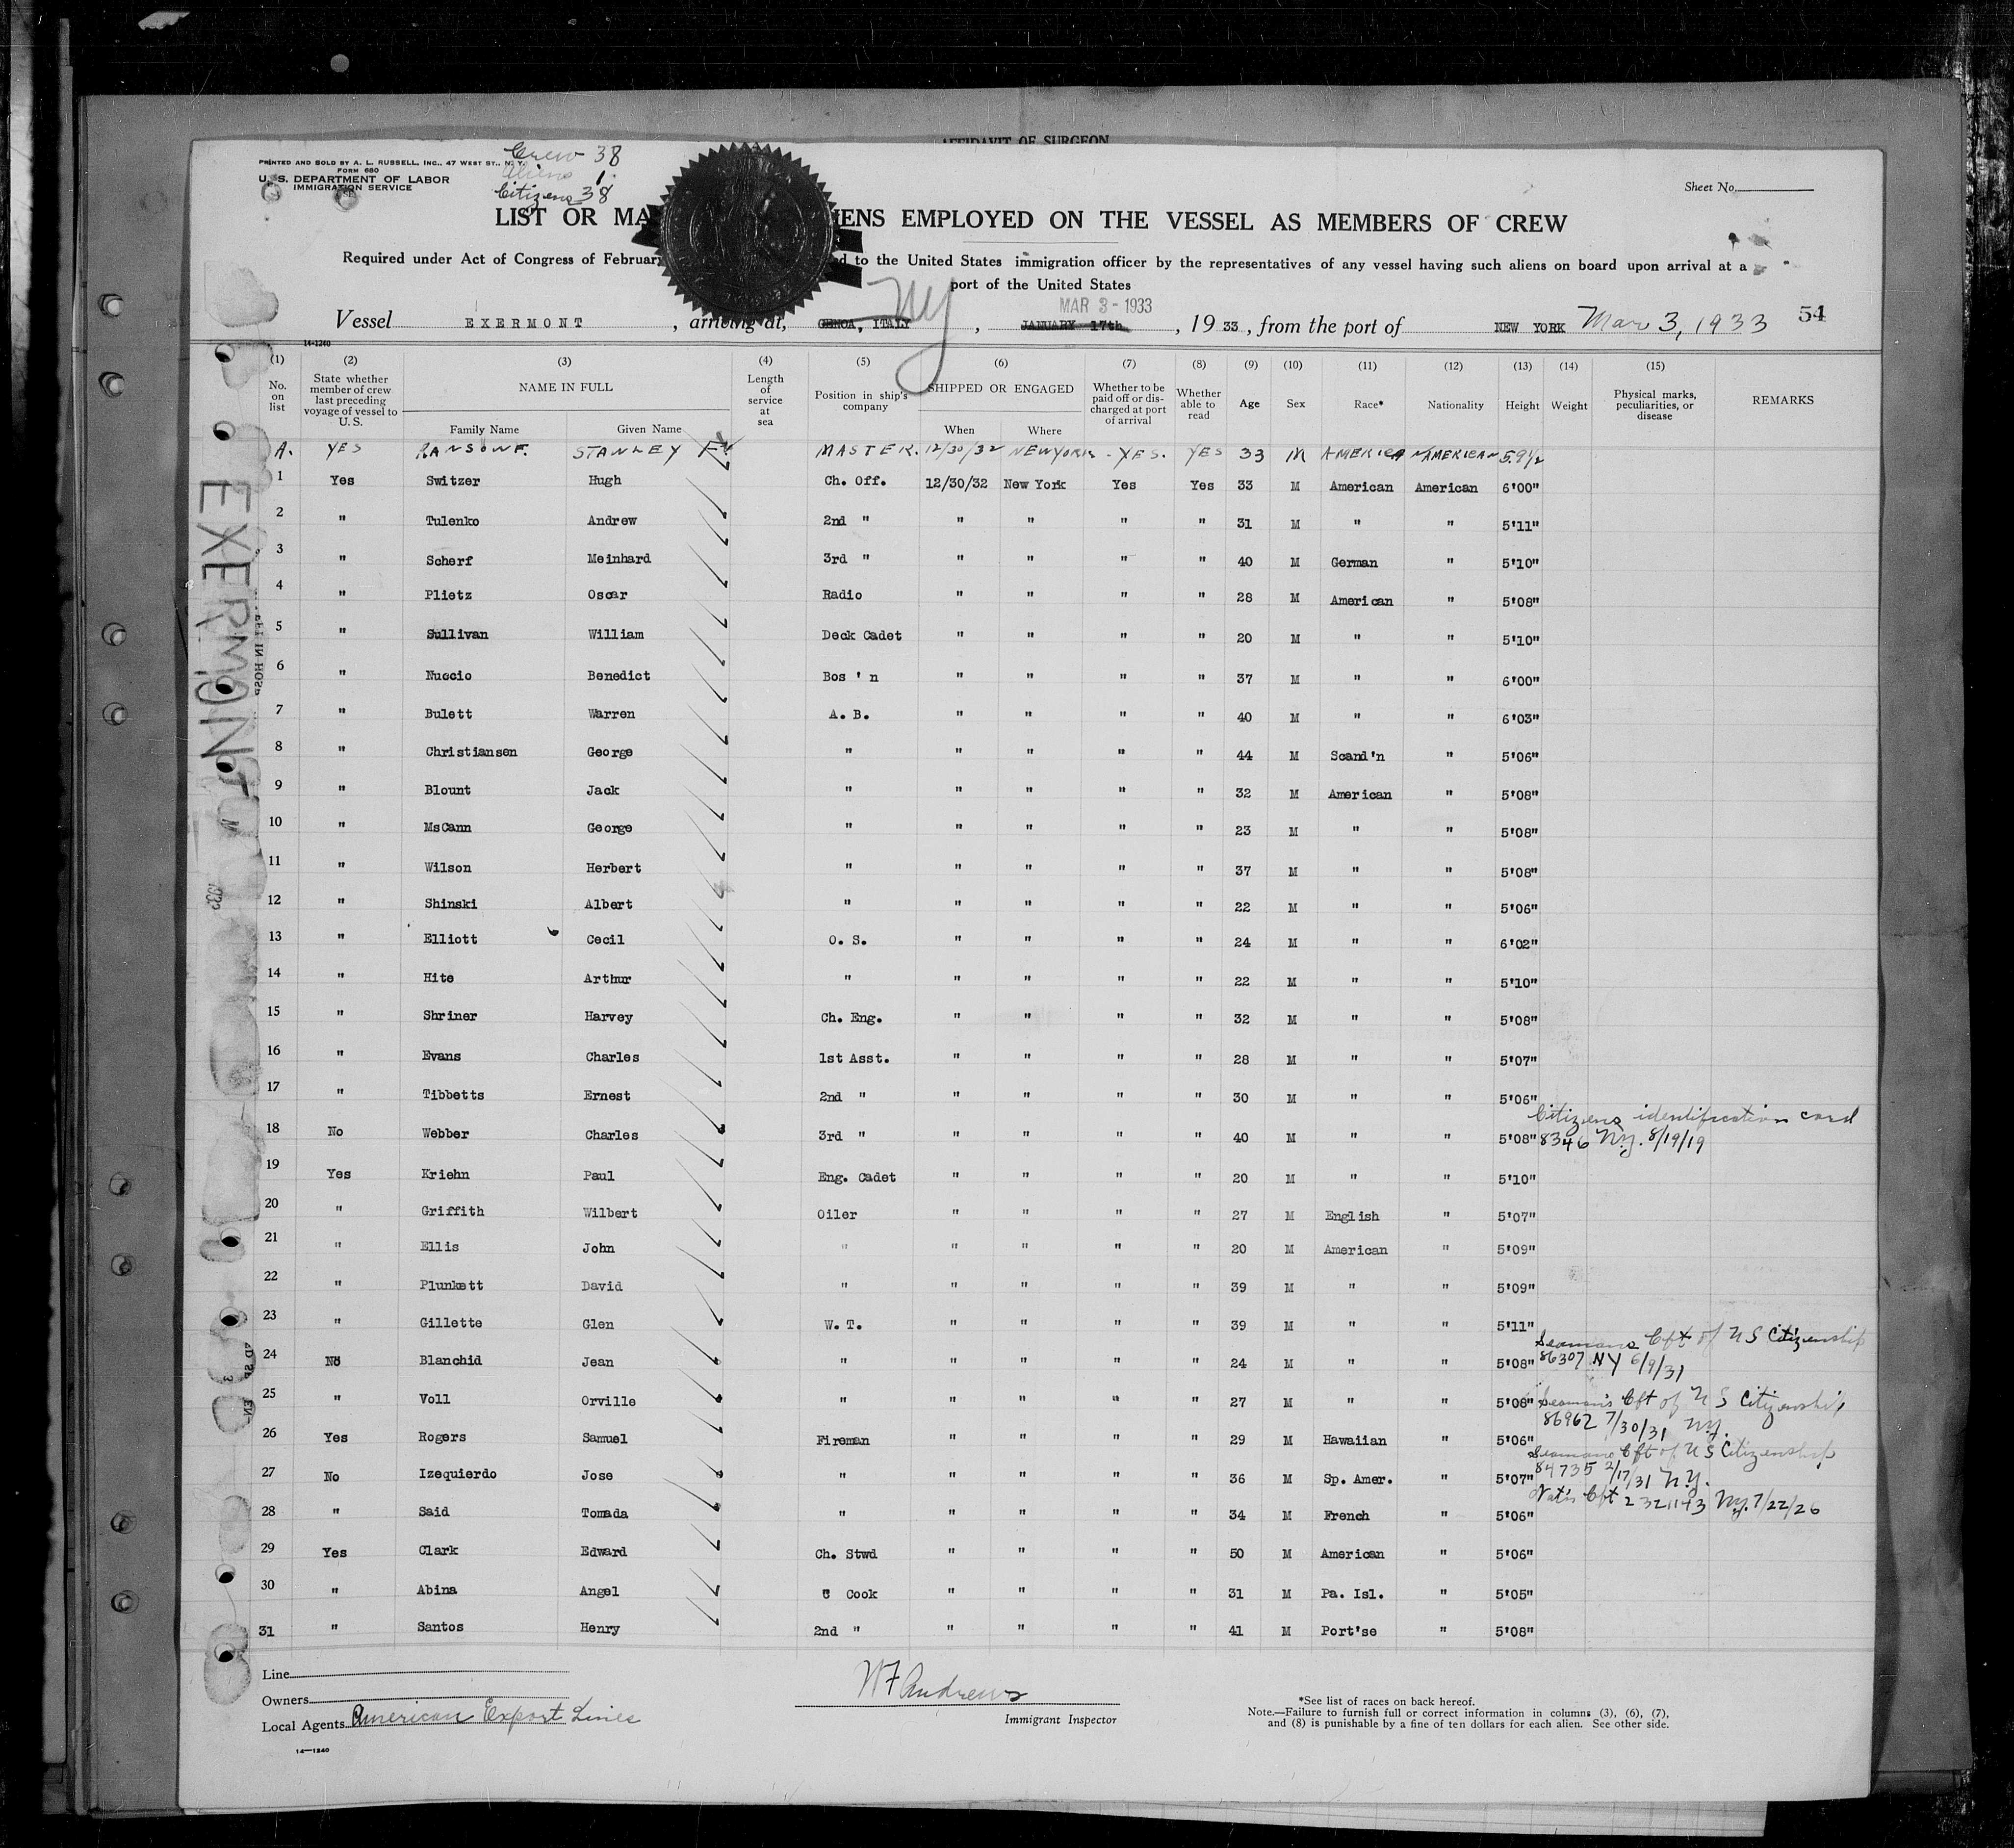 AFFIDAVIT OF SURGEON
PRINTED AND SOLD BY A. L. RUSSELL, INC., 47 WEST ST., N. Y.
FORM 680
U. S. DEPARTMENT OF LABOR
IMMIGRATION SERVICE
Crew 38
Aliens 1
Citizens 38
Sheet No.
LIST OR MA IENS EMPLOYED ON THE VESSEL AS MEMBERS OF CREW
Required under Act of Congress of Februar d to the United States immigration officer by the representatives of any vessel having such aliens on board upon arrival at a
port of the United States
MAR 3 - 1933
Vessel EXERMONT , arriving at, GENOA, ITALY NY , JANUARY 17th , 19 33 , from the port of NEW YORK Mar 3, 1933 54
14-1240
(1) (2) (3) (4) (5) (6) (7) (8) (9) (10) (11) (12) (13) (14) (15)
No. on list State whether member of crew last preceding voyage of vessel to U. S. NAME IN FULL Family Name Given Name Length of service at sea Position in ship's company SHIPPED OR ENGAGED When Where Whether to be paid off or discharged at port of arrival Whether able to read Age Sex Race* Nationality Height Weight Physical marks, peculiarities, or disease REMARKS
A. YES RANSONE STANLEY MASTER. 12/30/32 NEW YORK - YES. YES 33 M AMERICAN AMERICAN 5.9½
1 Yes Switzer Hugh Ch. Off. 12/30/32 New York Yes Yes 33 M American American 6'00"
2 " Tulenko Andrew 2nd " " " " " 31 M " " 5'11"
3 " Scherf Meinhard 3rd " " " " " 40 M German " 5'10"
4 " Plietz Oscar Radio " " " " 28 M American " 5'08"
5 " Sullivan William Deck Cadet " " " " 20 M " " 5'10"
6 " Nuccio Benedict Bos ' n " " " " 37 M " " 6'00"
7 " Bulett Warren A. B. " " " " 40 M " " 6'03"
8 " Christiansen George " " " " " 44 M Scand'n " 5'06"
9 " Blount Jack " " " " " 32 M American " 5'08"
10 " MsCann George " " " " " 23 M " " 5'08"
11 " Wilson Herbert " " " " " 37 M " " 5'08"
12 " Shinski Albert " " " " " 22 M " " 5'06"
13 " Elliott Cecil O. S. " " " " 24 M " " 6'02"
14 " Hite Arthur " " " " " 22 M " " 5'10"
15 " Shriner Harvey Ch. Eng. " " " " 32 M " " 5'08"
16 " Evans Charles 1st Asst. " " " " 28 M " " 5'07"
17 " Tibbetts Ernest 2nd " " " " " 30 M " " 5'06"
Citizens identification card
18 No Webber Charles 3rd " " " " " 40 M " " 5'08" 8346 N.Y. 8/19/19
19 Yes Kriehn Paul Eng. Cadet " " " " 20 M " " 5'10"
20 " Griffith Wilbert Oiler " " " " 27 M English " 5'07"
21 " Ellis John " " " " " 20 M American " 5'09"
22 " Plunkett David " " " " " 39 M " " 5'09"
23 " Gillette Glen W. T. " " " " 39 M " " 5'11"
Seamans Cft of U S Citizenship
24 No Blanchid Jean " " " " " 24 M " " 5'08" 86307 NY 6/9/31
25 " Voll Orville " " " " " 27 M " " 5'08" Seaman's Cft of U S Citizenship
86962 7/30/31 NY.
26 Yes Rogers Samuel Fireman " " " " 29 M Hawaiian " 5'06"
Seamans Cft of U S Citizenship
27 No Izequierdo Jose " " " " " 36 M Sp. Amer. " 5'07" 84735 2/17/31 N.Y.
Nat'n Cft 2321143 NY. 7/22/26
28 " Said Tomada " " " " " 34 M French " 5'06"
29 Yes Clark Edward Ch. Stwd " " " " 50 M American " 5'06"
30 " Abina Angel C Cook " " " " 31 M Pa. Isl. " 5'05"
31 " Santos Henry 2nd " " " " " 41 M Port'se " 5'08"
EXERMONT
Line
Owners
Local Agents American Export Lines
WF Andrews
Immigrant Inspector
*See list of races on back hereof.
Note.—Failure to furnish full or correct information in columns (3), (6), (7),
and (8) is punishable by a fine of ten dollars for each alien. See other side.
14—1240